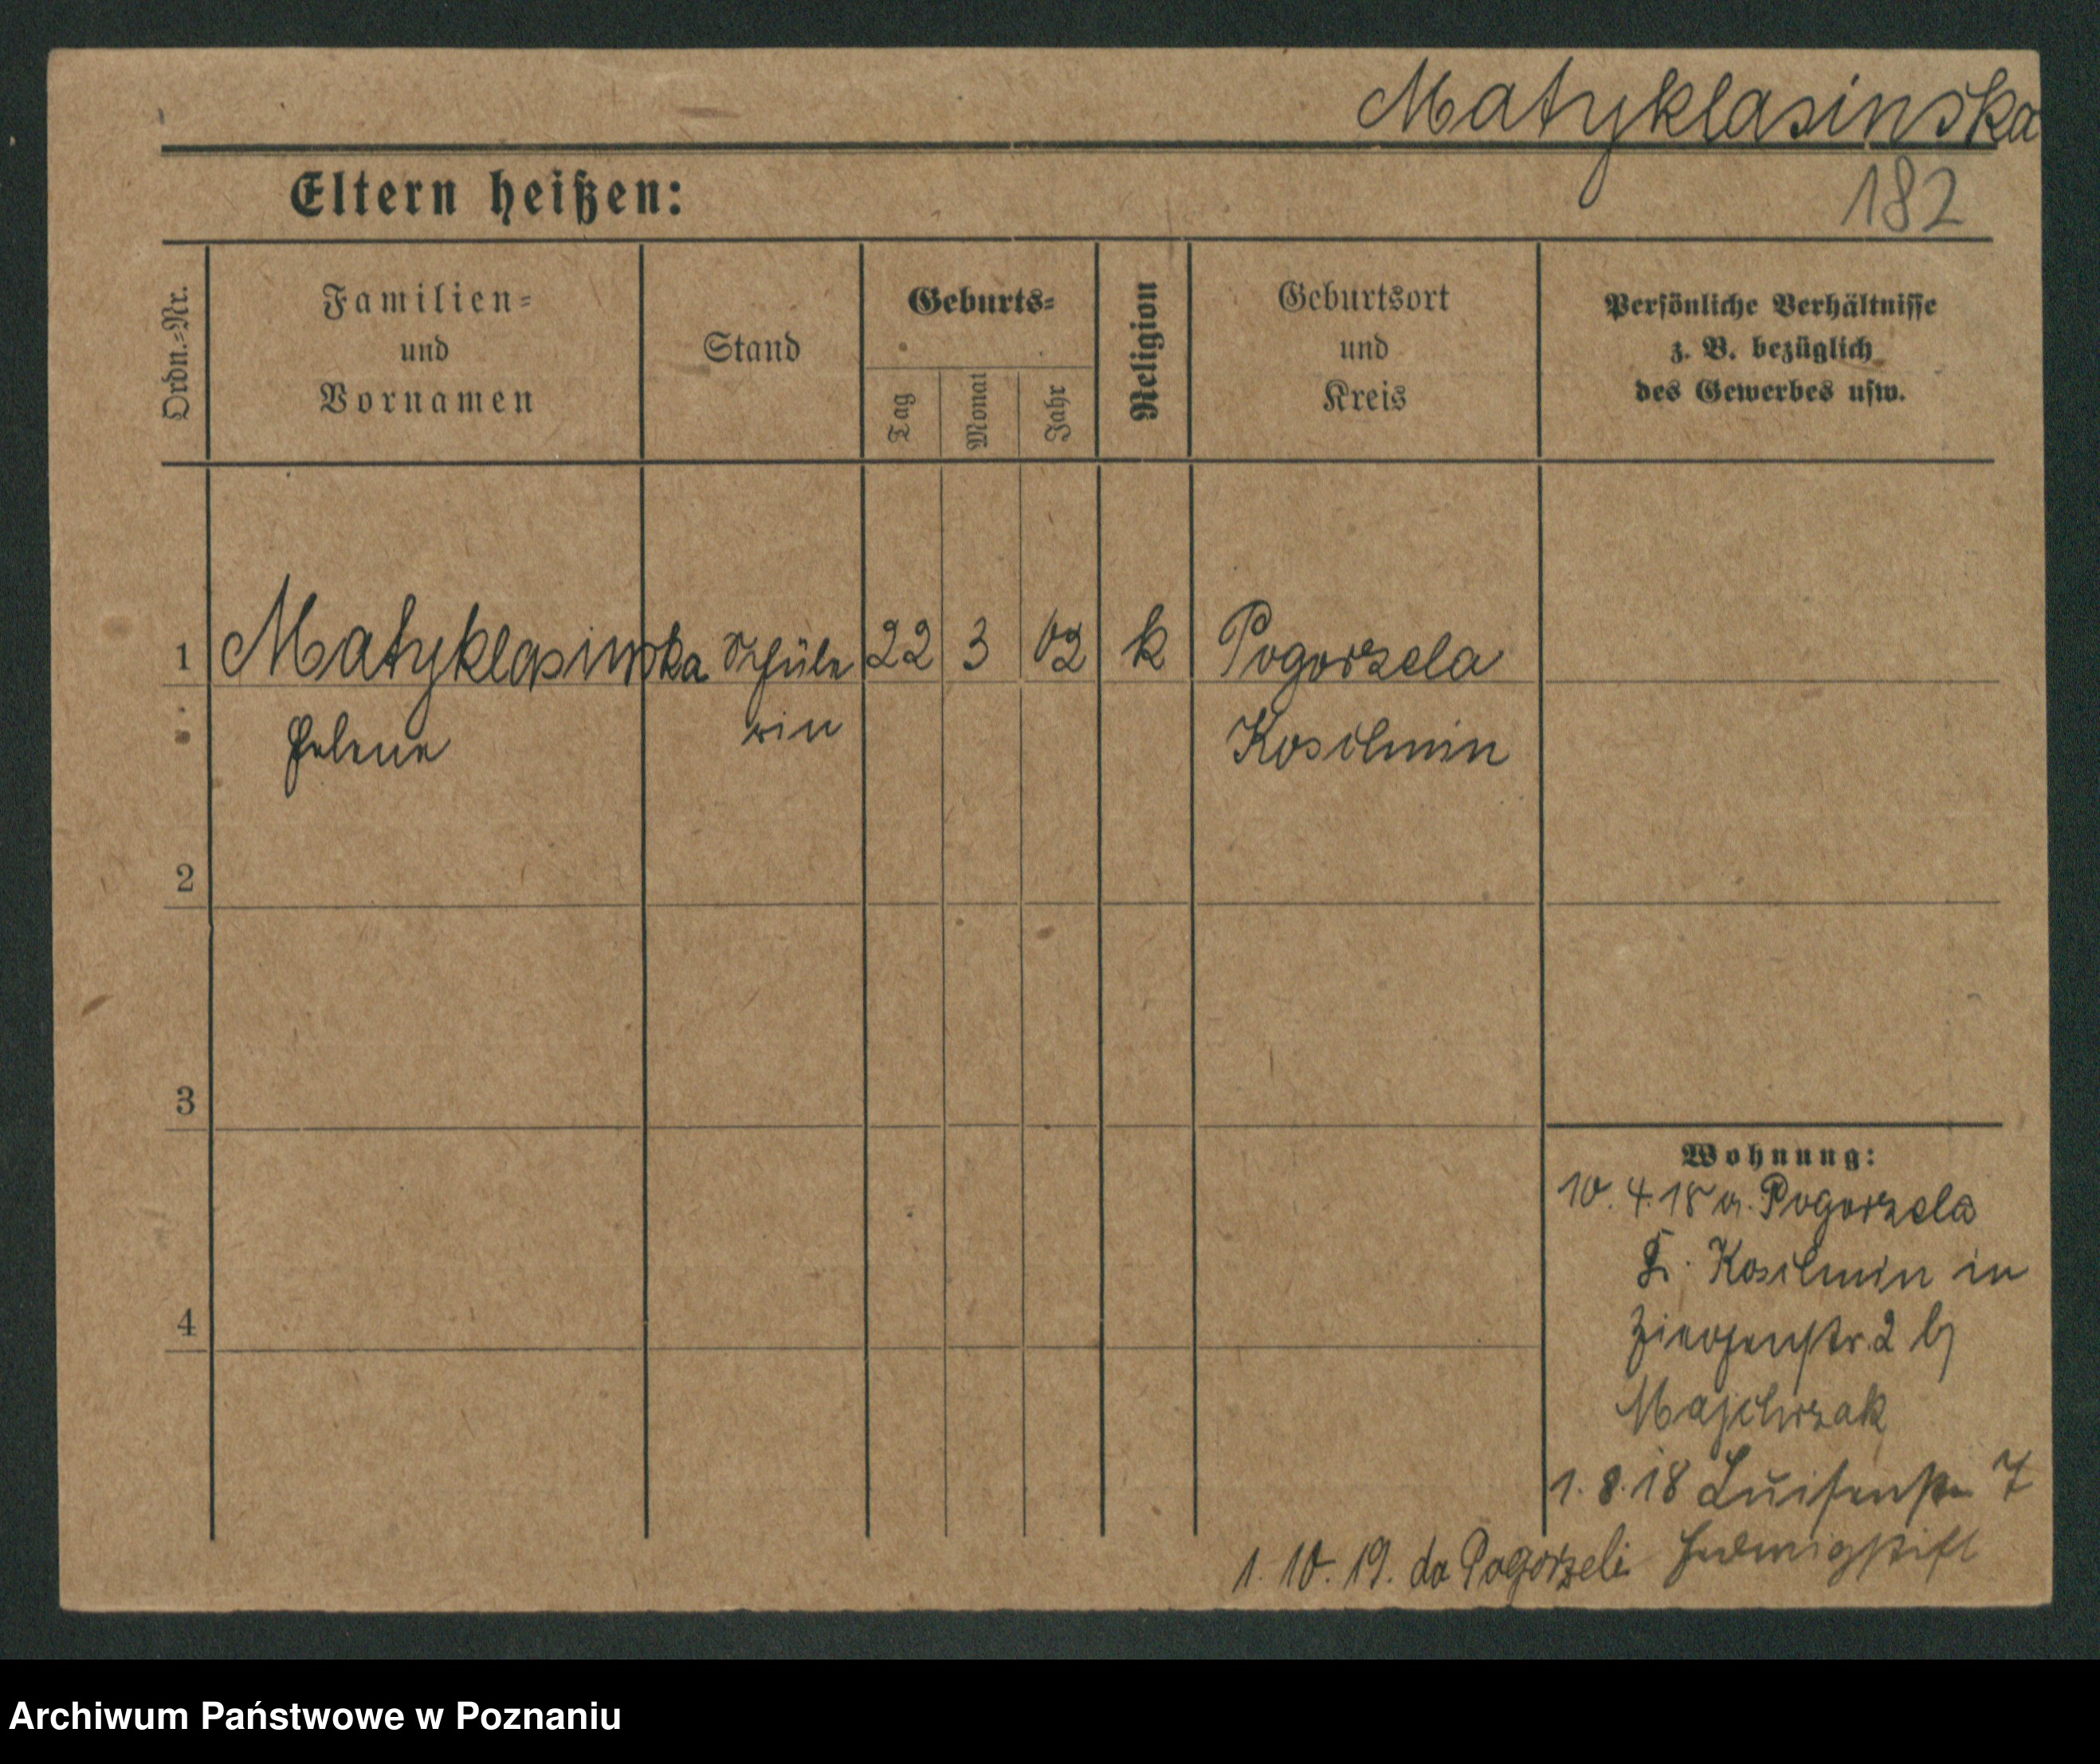 Matyklasinska
182
Eltern heißen:
Ordn.-Nr.
Familien-
und
Vornamen
Stand
Geburts-
Tag
Monat
Jahr
Religion
Geburtsort
und
Kreis
Persönliche Verhältnisse
z. B. bezüglich
des Gewerbes usw.
1 Matyklasinska Schüle 22 3 02 k Pogorzela
Helene rin Koschmin
2
3
4
Wohnung:
10. 4. 18 a. Pogorzela
Koschmin in
2 b
Majchrzak
1. 8. 18 Luisenstr 7
Hedwigstift
1. 10. 19. do Pogorzeli
Archiwum Państwowe w Poznaniu